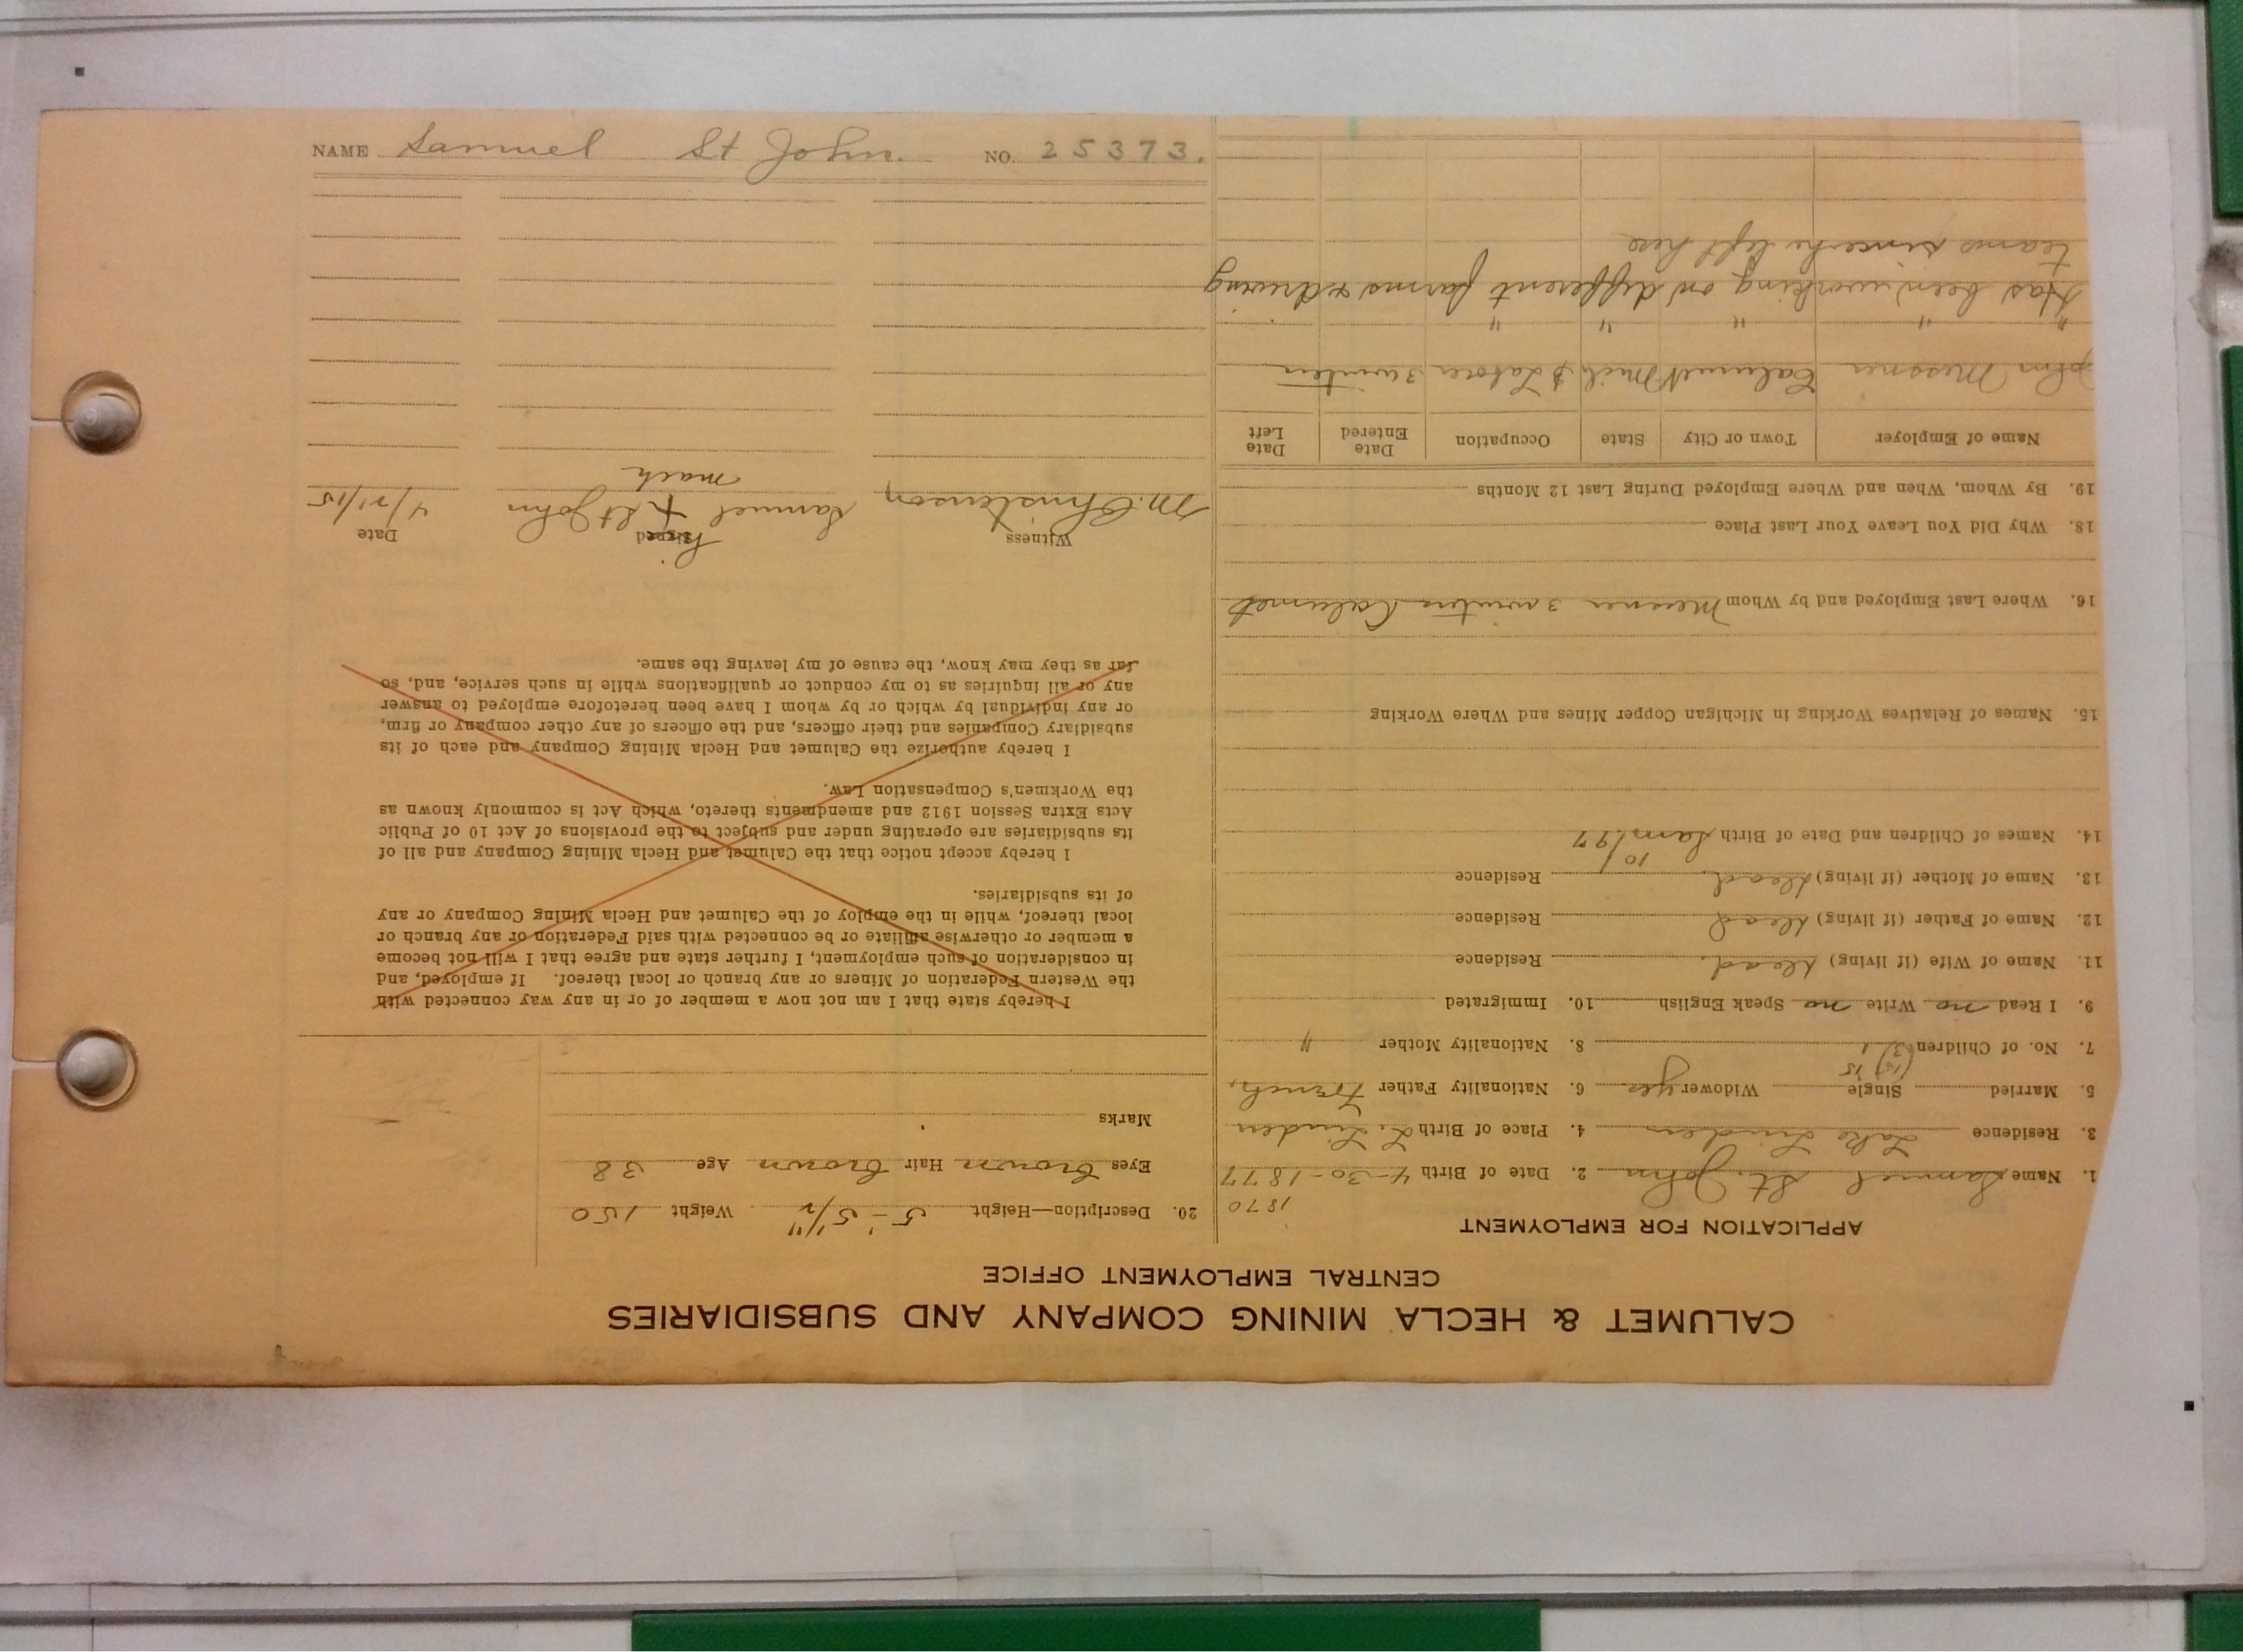 CALUMET & HECLA MINING COMPANY AND SUBSIDIARIES
CENTRAL EMPLOYMENT OFFICE
APPLICATION FOR EMPLOYMENT
1870
1. Name Samuel St. John 2. Date of Birth 4-30-1877
3. Residence Lake Linden 4. Place of Birth L. Linden
5. Married Single Widower yes 6. Nationality Father French
7. No. of Children 1 8. Nationality Mother "
9. I Read no Write no Speak English 10. Immigrated
11. Name of Wife (if living) dead. Residence
12. Name of Father (if living) dead Residence
13. Name of Mother (if living) dead. Residence
14. Names of Children and Date of Birth Sam 10/97
15. Names of Relatives Working in Michigan Copper Mines and Where Working
16. Where Last Employed and by Whom Messner 3 winters Calumet
18. Why Did You Leave Your Last Place
19. By Whom, When and Where Employed During Last 12 Months
Name of Employer Town or City State Occupation Date Entered Date Left
John Messner Calumet Mich Laborer 3 winters
" " " " "
Has been working on different farms & driving
teams since he left here
20. Description—Height 5'-5 1/2" Weight 150
Eyes brown Hair brown Age 38
Marks
I hereby state that I am not now a member of or in any way connected with
the Western Federation of Miners or any branch or local thereof. If employed, and
in consideration of such employment, I further state and agree that I will not become
a member or otherwise affiliate or be connected with said Federation or any branch or
local thereof, while in the employ of the Calumet and Hecla Mining Company or any
of its subsidiaries.
I hereby accept notice that the Calumet and Hecla Mining Company and all of
its subsidiaries are operating under and subject to the provisions of Act 10 of Public
Acts Extra Session 1912 and amendments thereto, which Act is commonly known as
the Workmen's Compensation Law.
I hereby authorize the Calumet and Hecla Mining Company and each of its
subsidiary Companies and their officers, and the officers of any other company or firm,
or any individual by which or by whom I have been heretofore employed to answer
any or all inquiries as to my conduct or qualifications while in such service, and, so
far as they may know, the cause of my leaving the same.
Witness Signed Date
his
M. Christenson Samuel X St John 4/21/15
mark
NAME Samuel St John. NO. 25373.